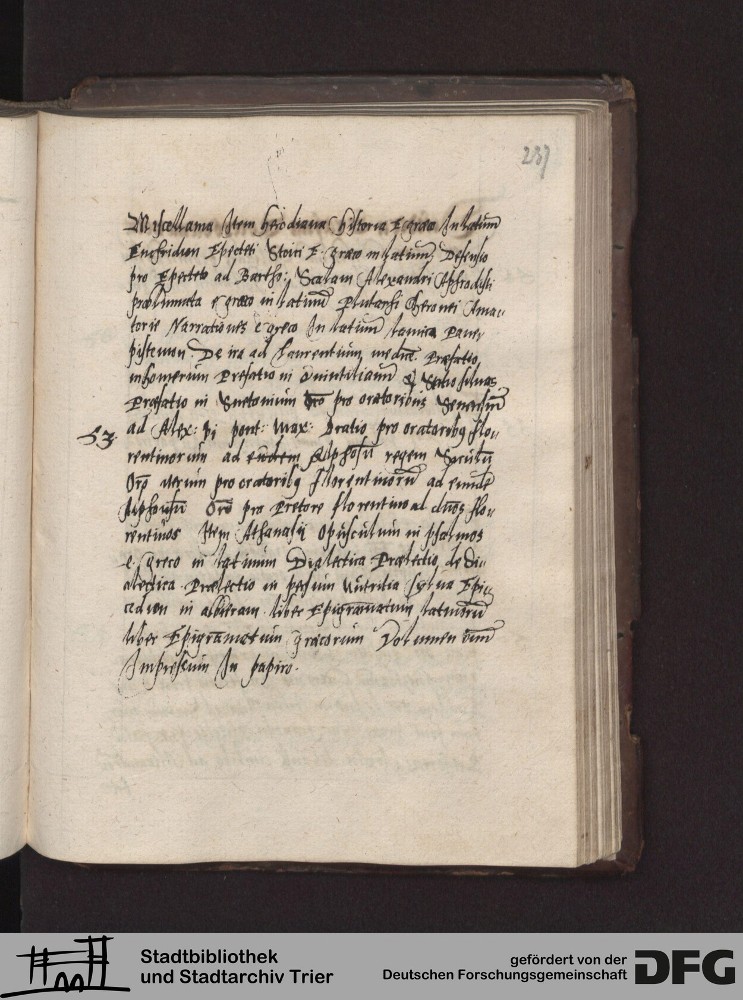 237
Miscellania Item herodiana historia E greco In latinum
Enchridion Epecteti Stoici E greco in latinum, Defensio
pro Epecteto ad Bartho: Scalam Alexandri Aphrodisei
problumata e greco in latinum plutarchi Cheronei Ama-
torie Narrationes e greco In latinum lamia Panei
pistemon. De ira ad laurentium medice. Præfatio
in homerium Prefatio in Quintilianum & Statio siluas
Præfatio in Suetonium Oro pro oratoribus Senensium
53. ad Alex: pi pont: Max: Oratio pro oratoribus flo-
rentinorum ad eundem Alphosum regem Siculum
Oro iterum pro oratoribus florentinorum ad eundem
Alphonsum Oro pro Pretore florentino ad duos flo-
rentinos Item Athanasij Opusculum in psalmos
e greco in latinum Dialectica Prælectio de di-
alectica Prælectio in persium Nutritia sylua Epi-
cedion in albieram liber Epigramatum latinorum
liber Epigramatum græcorum Volumen unum
Impressum In papiro.
Stadtbibliothek
und Stadtarchiv Trier
gefördert von der
Deutschen Forschungsgemeinschaft
DFG